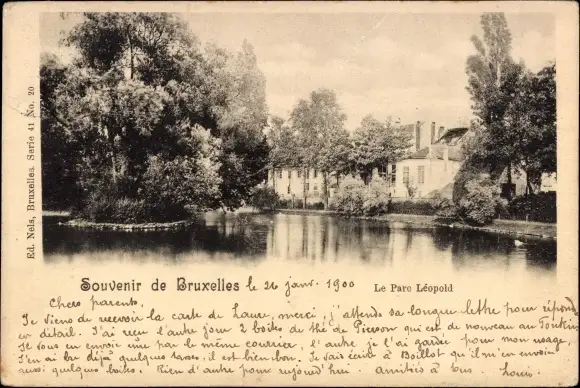 Ed. Nels, Bruxelles. Serie 41 No. 20
Souvenir de Bruxelles le 26 janv. 1900
Le Parc Léopold
Chers parents,
Je viens de recevoir la carte de Laure, merci, j'attends sa longue lettre pour répond
en détail. J'ai reçu l'autre jour 2 boîtes de thé de Pierson qui est de nouveau au Tonkin
Je vous en envoie une par le même courrier, l'autre je l'ai gardé pour mon usage,
J'en ai bu déjà quelques tasses, il est bien bon. Je vais écrire à Boillot qu'il m'en envoie
aussi quelques boîtes. Rien d'autre pour aujourd'hui. Amitiés à tous Louis.